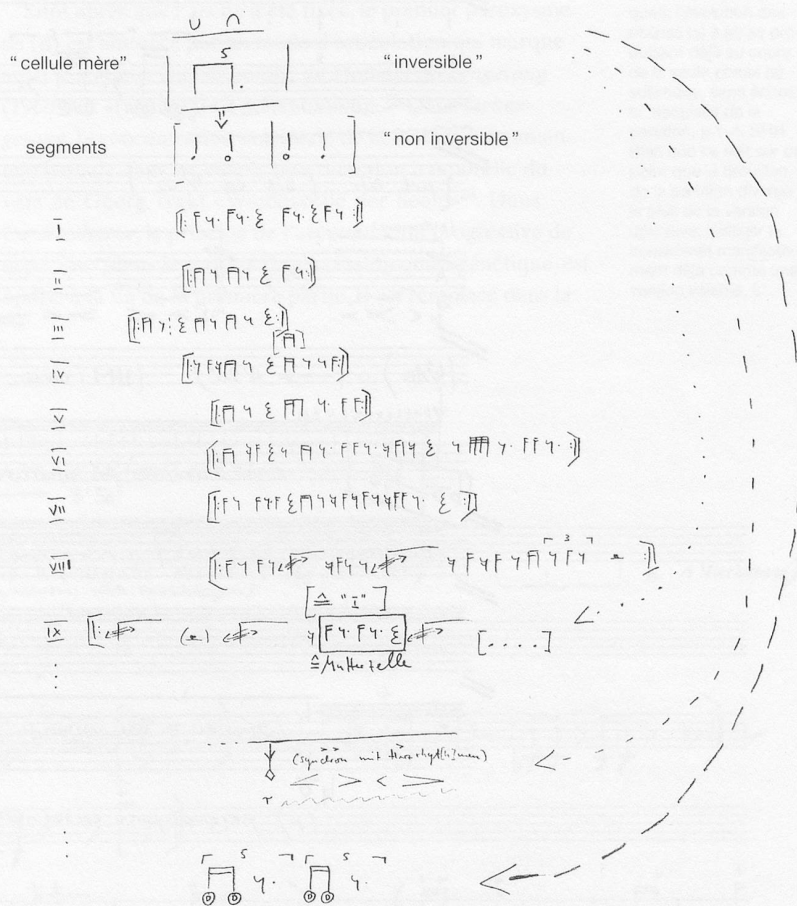 ∪ ∩
5
“cellule mère” “inversible”
segments “non inversible”
I
II
III
IV
V
VI
VII
VIII
3
[≙ "I"]
IX
[. . . .]
≙ Mutterzelle
(synchron mit Herzrhyt[h]men)
< > < >
5 5